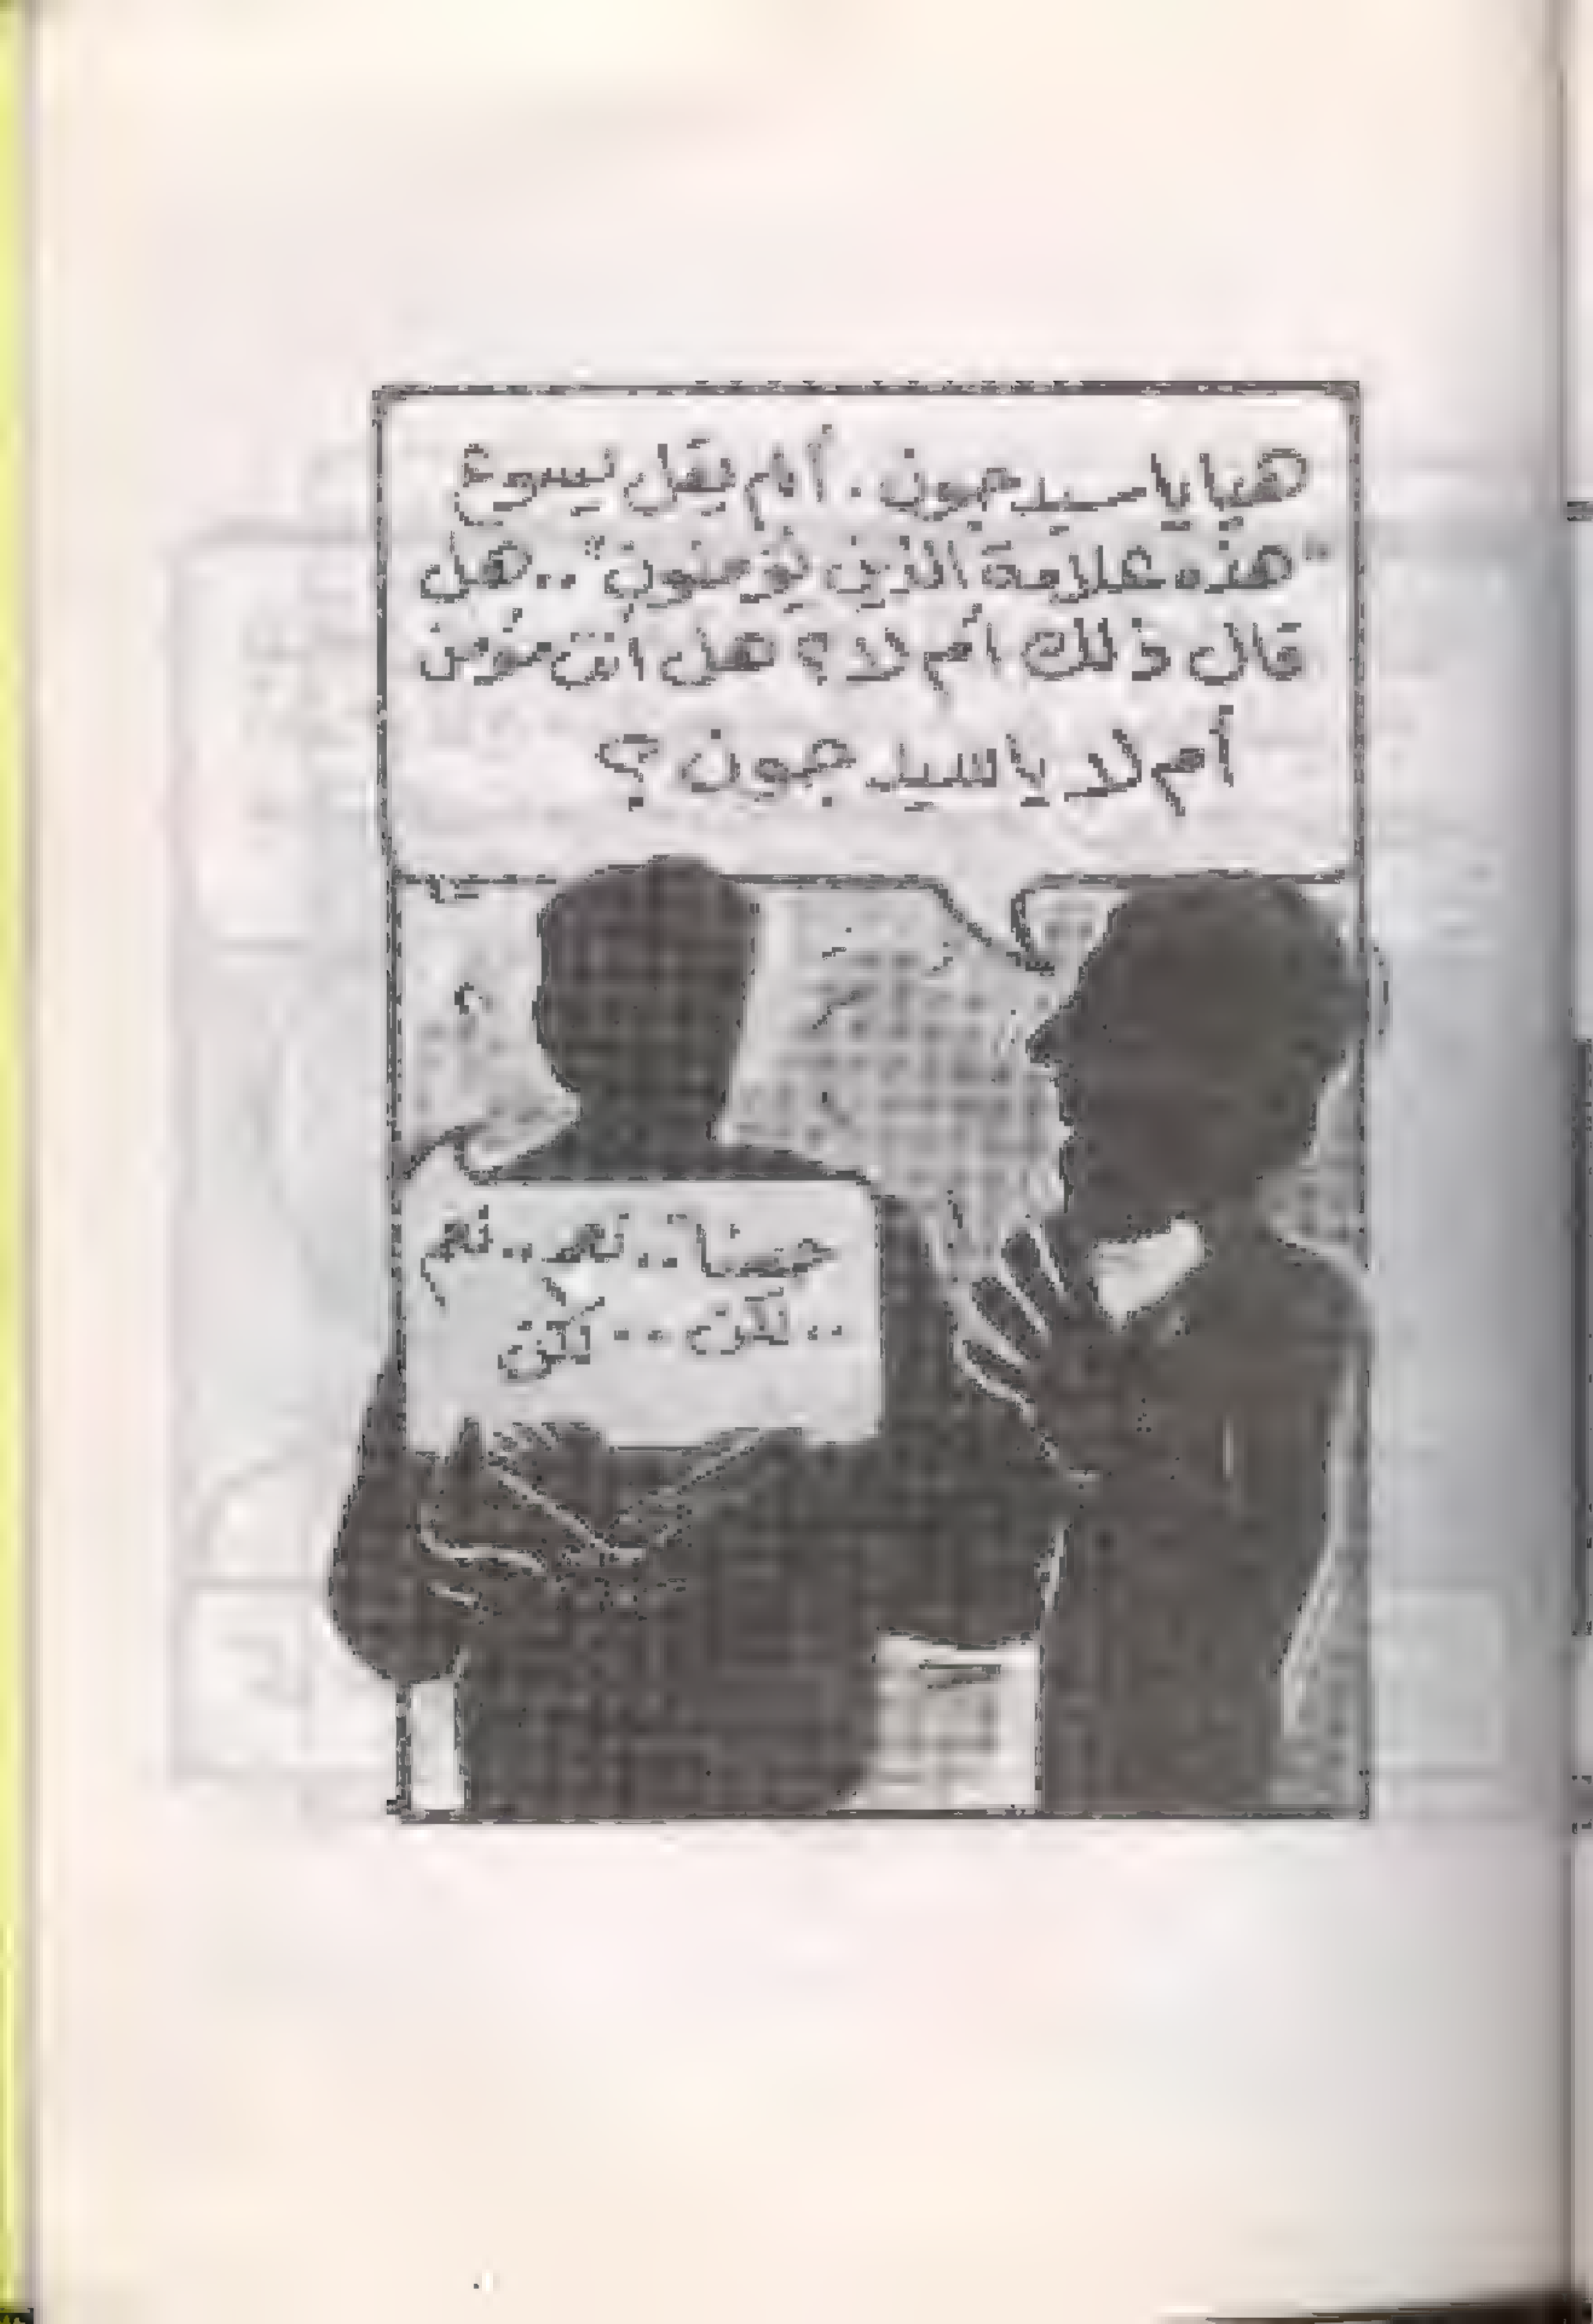 هيا يا سيد جون . ألم يقل يسوع
"هذه علامة الذين يؤمنون" .. هل
قال ذلك أم لا ؟ هل أنت مؤمن
أم لا يا سيد جون ؟
حسنا .. نعم .. نعم
.. لكن .. لكن